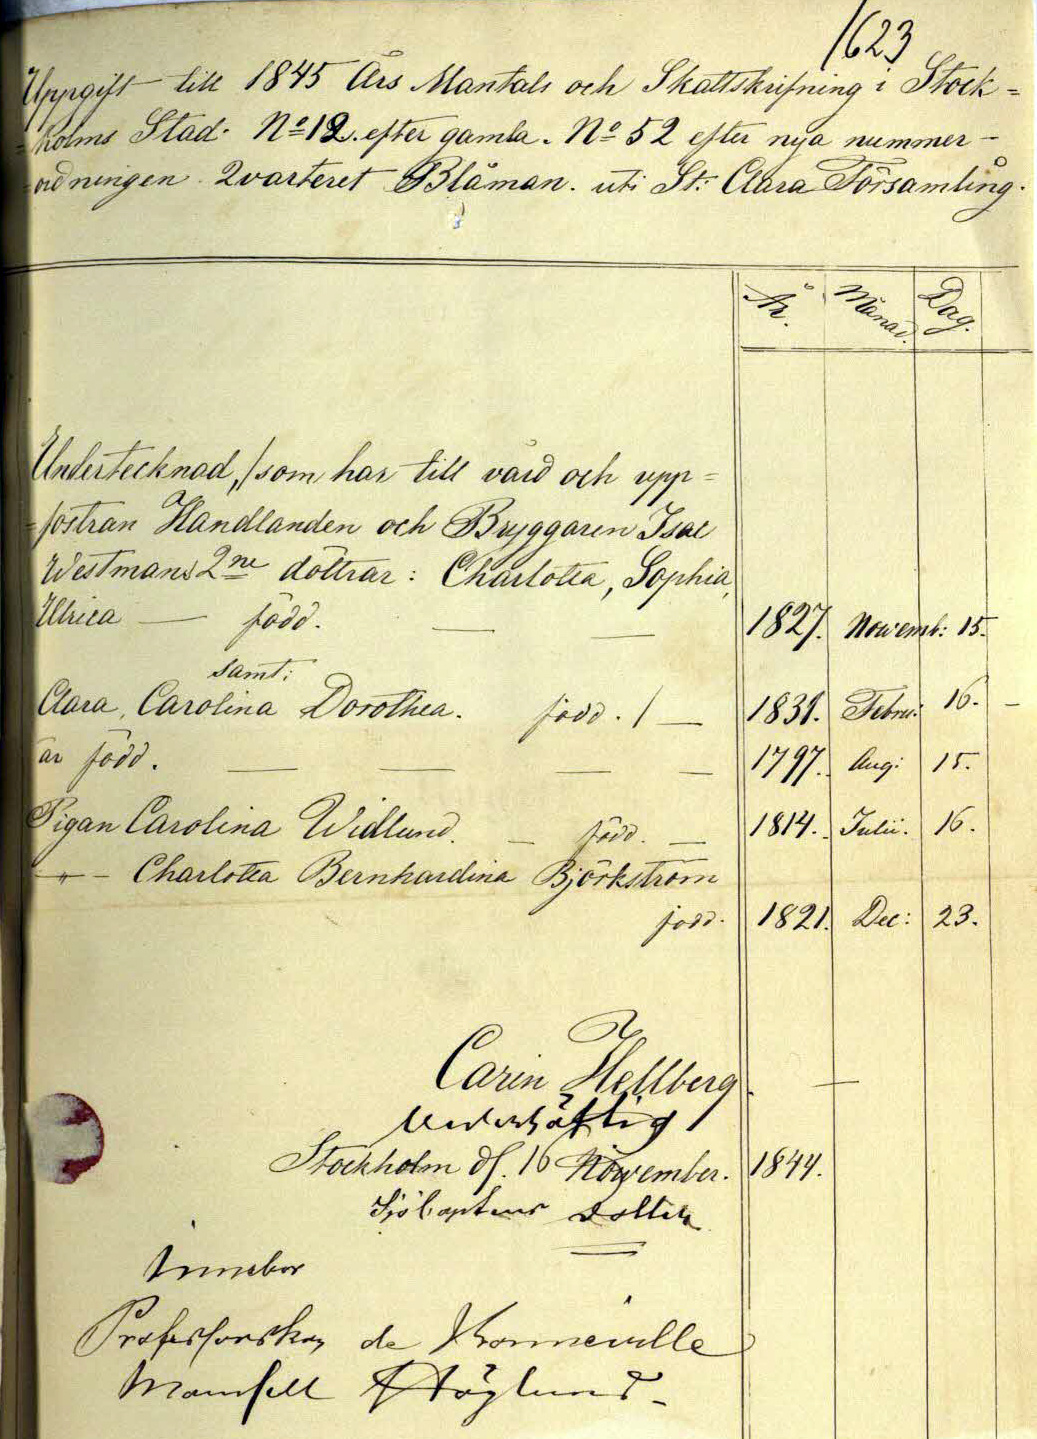 1623
Uppgift till 1845 Års Mantals och Skattskrifning i Stock=
=holms Stad. No 12. efter gamla. No 52 efter nya nummer-
=ordningen. Qvarteret Blåman. uti St: Clara Församling.
År. Månad. Dag.
Undertecknad, /som har till vård och upp=
=fostran Handlanden och Bryggaren Isac
Westmans 2ne döttrar: Charlotta, Sophia,
Ulrica — född. — — 1827. Nowemb: 15.
samt:
Clara, Carolina Dorothea. född. / — 1831. Febru: 16. —
är född. — — — — 1797. Aug: 15.
Pigan Carolina Widlund. — född. — 1814. Julii. 16.
—"— Charlotta Bernhardina Björkström
född. 1821. Dec: 23.
Carin Hellberg. —
Stockholm d. 16 Nowember. 1844.
Sjö Captens dotter
Innebor
Professorskan de
Mamsell Höglund.